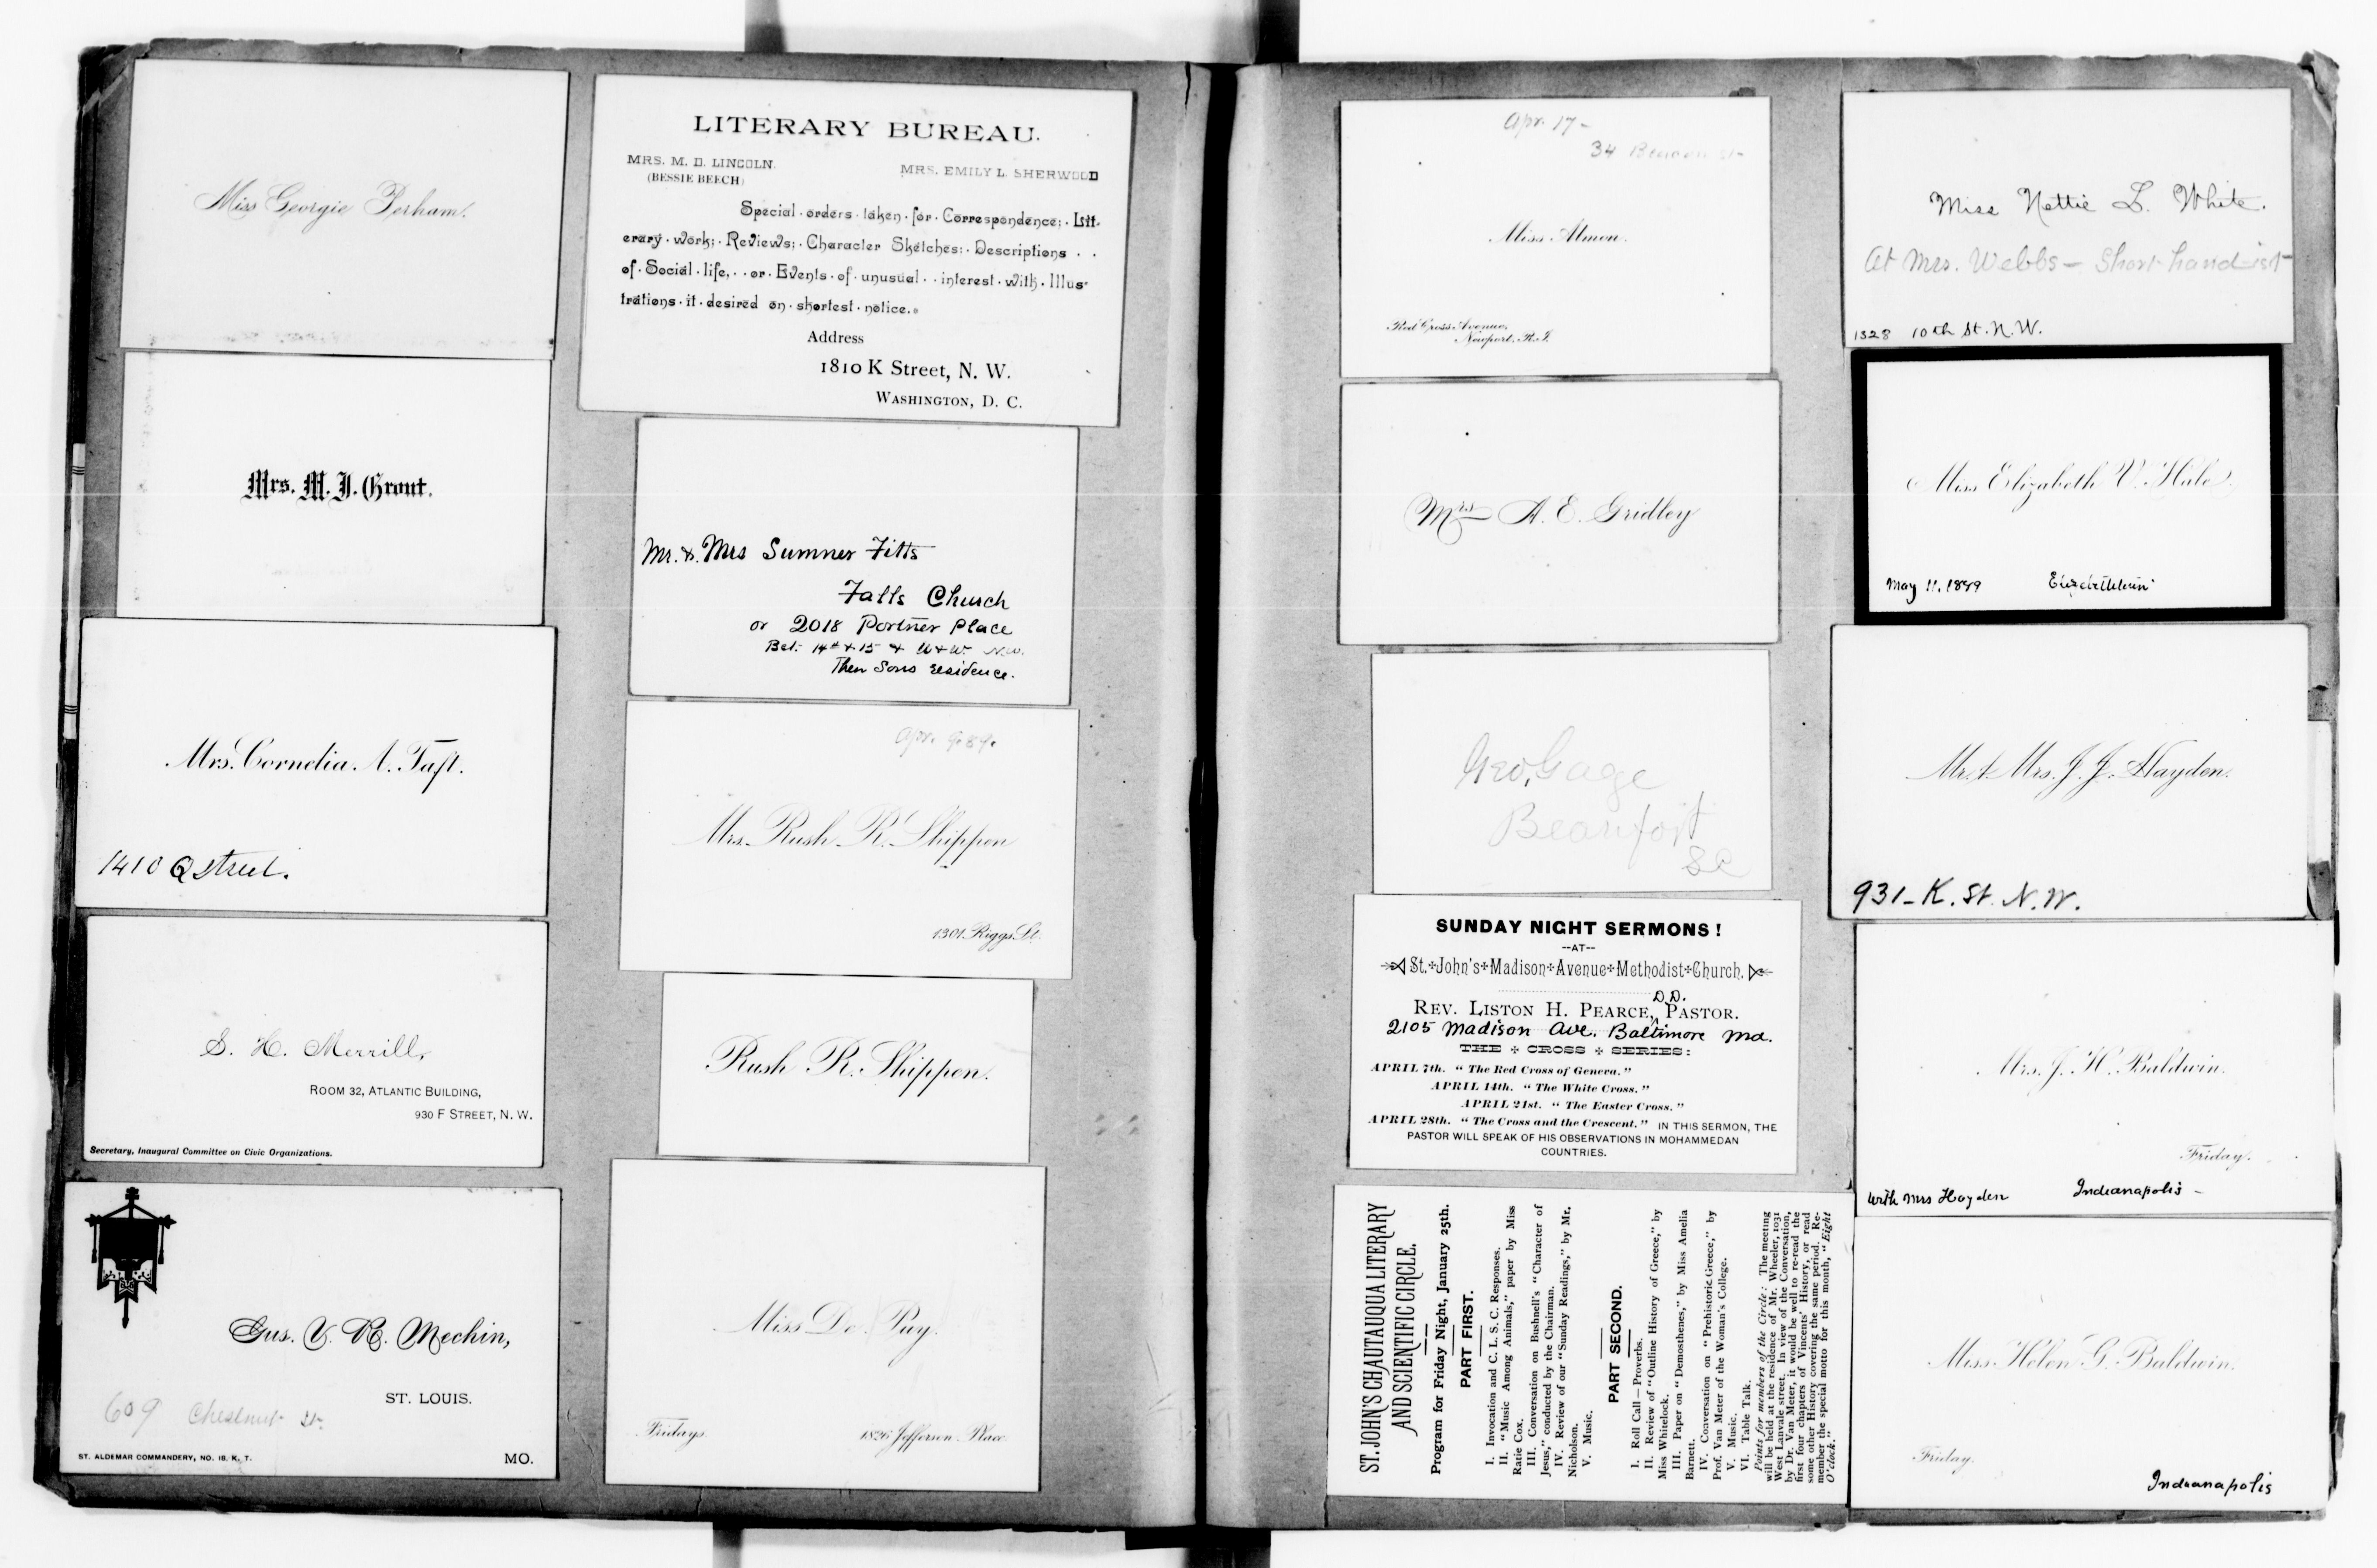 Miss Georgie Perham.
Mrs. M. J. Grout.
Mrs. Cornelia A. Taft.
1410 Q Street.
S. H. Merrill,
ROOM 32, ATLANTIC BUILDING,
930 F STREET, N. W.
Secretary, Inaugural Committee on Civic Organizations.
Gus. V. R. Mechin,
ST. LOUIS.
609 Chestnut St
ST. ALDEMAR COMMANDERY, NO. 18. K. T.
MO.
LITERARY BUREAU.
MRS. M. D. LINCOLN.
(BESSIE BEECH)
MRS. EMILY L. SHERWOOD
Special · orders · taken · for · Correspondence; · Litt-
erary · work; · Reviews; · Character Sketches: · Descriptions · ·
of · Social · life, · · or · Events · of · unusual · · interest · with · Illus-
trations · it · desired on · shortest · notice.
Address
1810 K Street, N. W.
WASHINGTON, D. C.
Mr. & Mrs Sumner Fitts
Falls Church
or 2018 Portner Place
Bet. 14th & 15 & U & W. N.W.
Then Sons residence.
Apr. 9. 89.
Mrs. Rush R. Shippen
1301 Riggs St.
Rush R. Shippen.
Miss De Puy.
Fridays.
1826 Jefferson Place
Apr. 17-
34 Beacon St-
Miss Almon.
Red Cross Avenue,
Newport, R. I.
Mrs A. E. Gridley
Geo. Gage
Beaufort
SC
SUNDAY NIGHT SERMONS!
--AT--
St. John's Madison Avenue Methodist Church.
D.D.
REV. LISTON H. PEARCE, PASTOR.
2105 Madison Ave. Baltimore Md.
THE + CROSS + SERIES:
APRIL 7th. "The Red Cross of Geneva."
APRIL 14th. "The White Cross."
APRIL 21st. "The Easter Cross."
APRIL 28th. "The Cross and the Crescent." IN THIS SERMON, THE
PASTOR WILL SPEAK OF HIS OBSERVATIONS IN MOHAMMEDAN
COUNTRIES.
ST. JOHN'S CHAUTAUQUA LITERARY
AND SCIENTIFIC CIRCLE.
Program for Friday Night, January 25th.
PART FIRST.
I. Invocation and C. L. S. C. Responses.
II. "Music Among Animals," paper by Miss
Ratie Cox.
III. Conversation on Bushnell's "Character of
Jesus," conducted by the Chairman.
IV. Review of our "Sunday Readings," by Mr.
Nicholson.
V. Music.
PART SECOND.
I. Roll Call—Proverbs.
II. Review of "Outline History of Greece," by
Miss Whitelock.
III. Paper on "Demosthenes," by Miss Amelia
Barnett.
IV. Conversation on "Prehistoric Greece," by
Prof. Van Meter of the Woman's College.
V. Music.
VI. Table Talk.
Points for members of the Circle: The meeting
will be held at the residence of Mr. Wheeler, 1031
West Lanvale street. In view of the Conversation,
by Dr. Van Meter, it would be well to re-read the
first four chapters of Vincents' History, or read
some other History covering the same period. Re-
member the special motto for this month, "Eight
O'clock."
Miss Nettie L. White.
At Mrs. Webbs - Short-hand-ist-
1328 10th St. N. W.
Miss Elizabeth V. Hale.
May 11. 1889
Mr. & Mrs. J. J. Hayden.
931- K. St. N. W.
Mrs. J. H. Baldwin.
Friday.
With Mrs Hayden Indianapolis -
Miss Helen G. Baldwin.
Friday.
Indianapolis